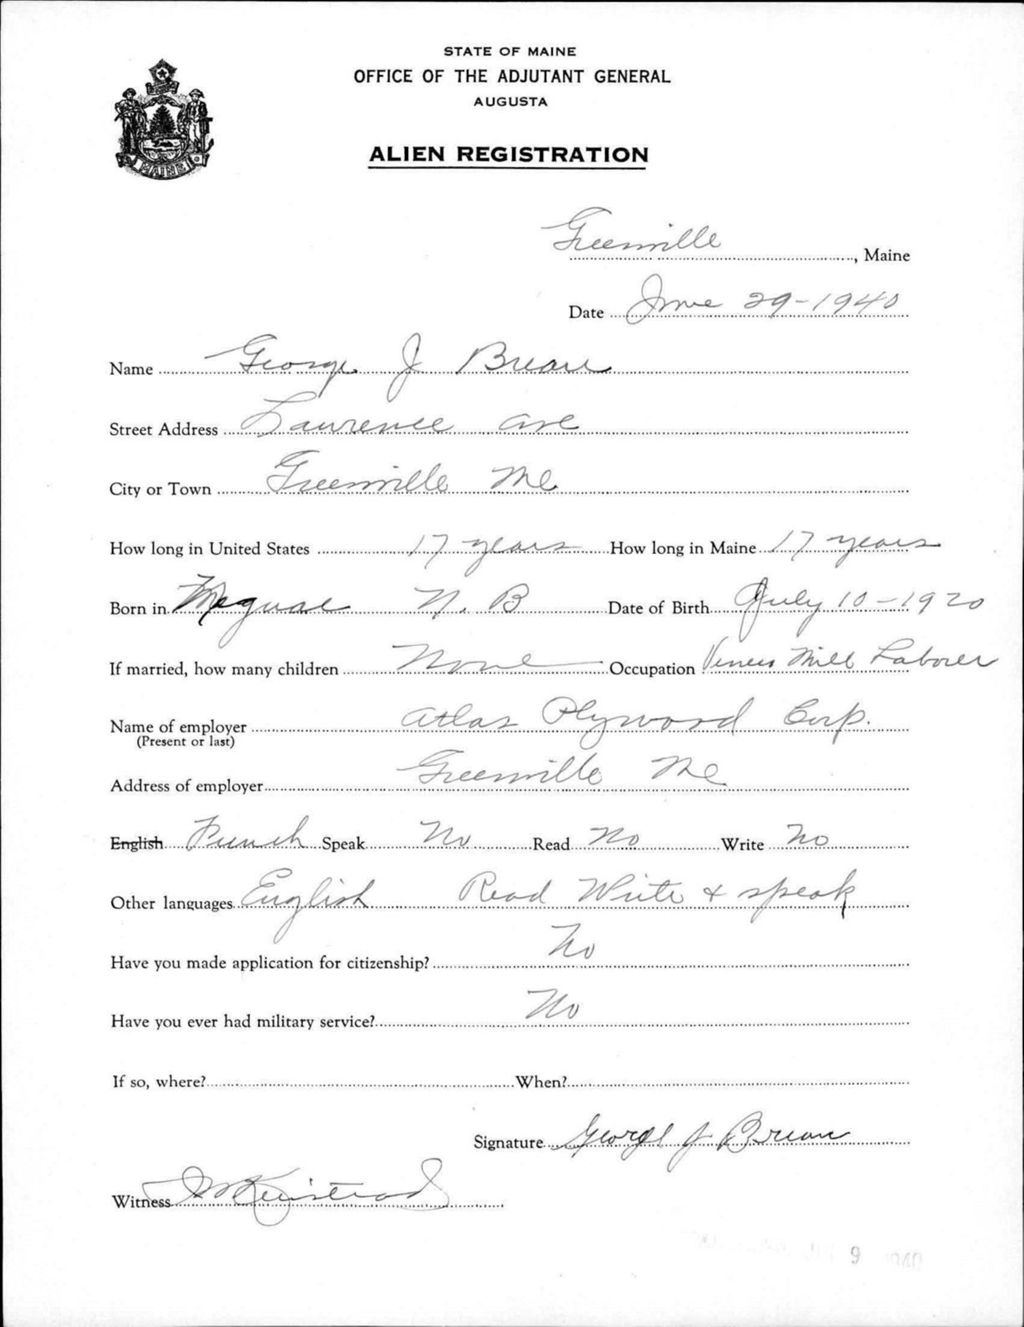 STATE OF MAINE
OFFICE OF THE ADJUTANT GENERAL
AUGUSTA
MAINE
ALIEN REGISTRATION
Greenville, Maine
Date June 29-1940
Name George J
Street Address Lawrence ave
City or Town Greenville Me
How long in United States 17 years How long in Maine 17 years
Born in N. B Date of Birth July 10-1920
If married, how many children None Occupation Mill Laborer
Name of employer Atlas Plywood Corp.
(Present or last)
Address of employer Greenville Me
English French Speak No Read No Write No
Other languages English Read Write & speak
Have you made application for citizenship? No
Have you ever had military service? No
If so, where? When?
Signature George J
Witness
9 1940